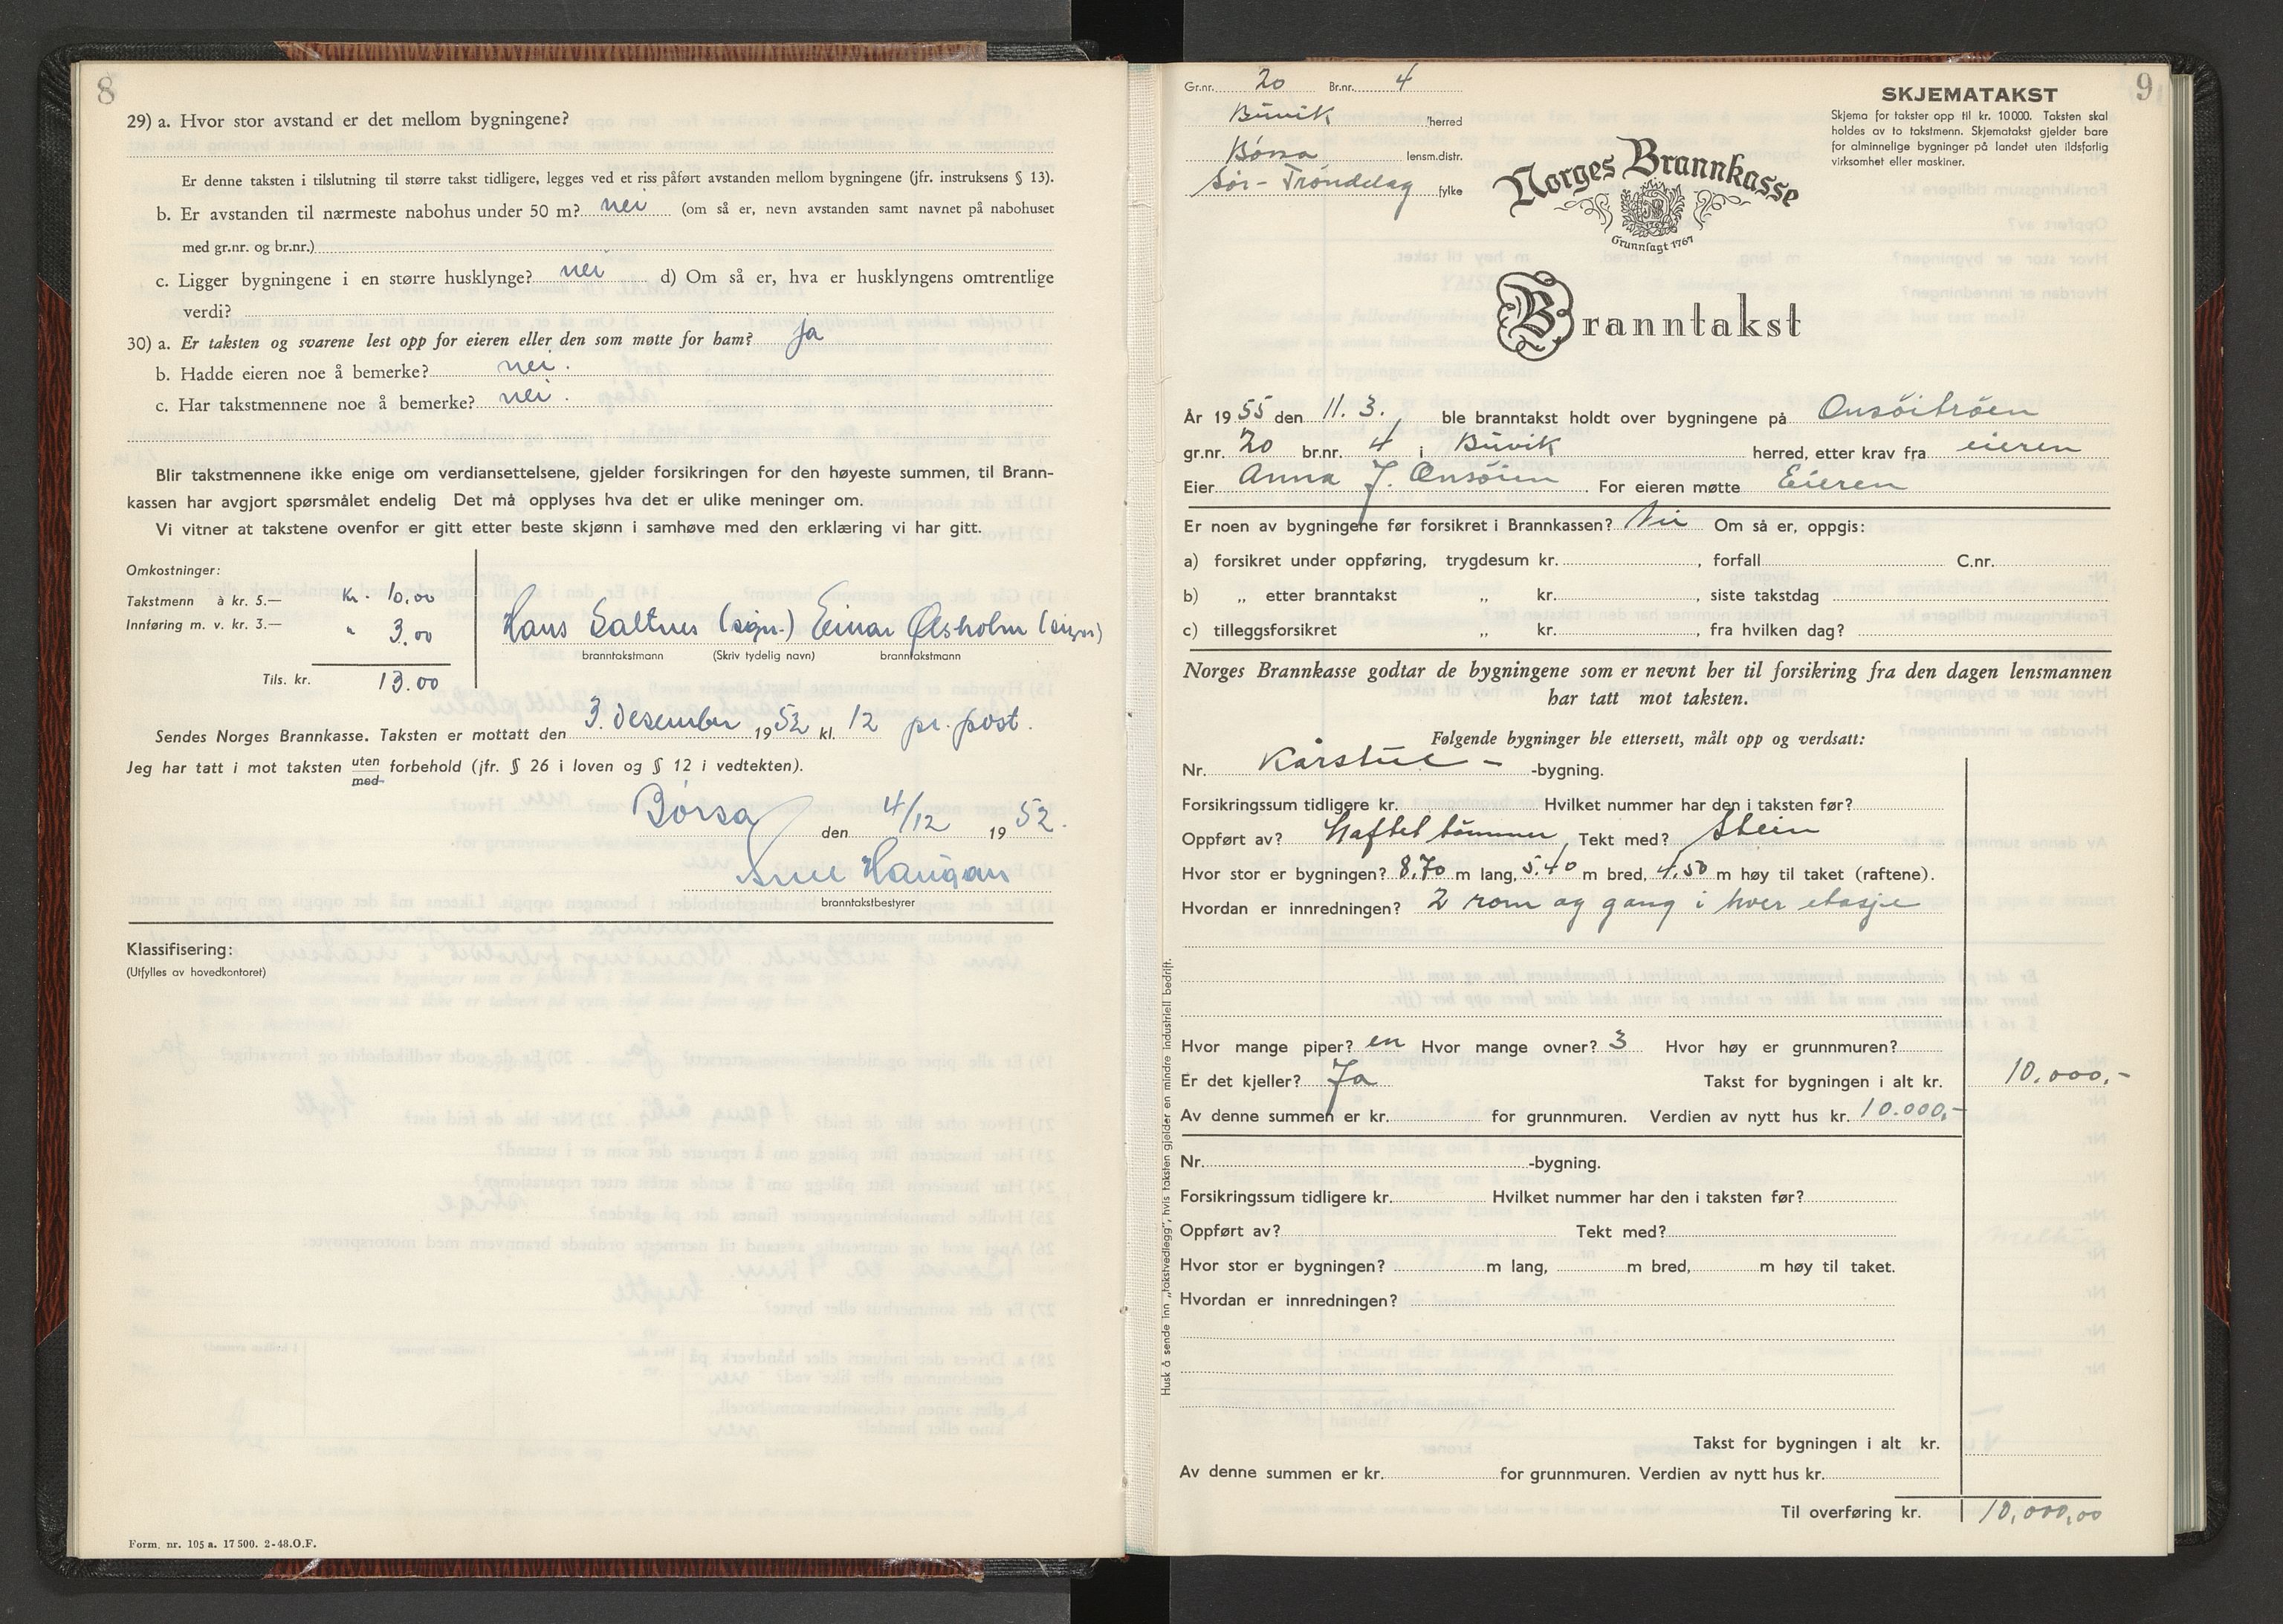 8
29) a. Hvor stor avstand er det mellom bygningene?
Er denne taksten i tilslutning til større takst tidligere, legges ved et riss påført avstanden mellom bygningene (jfr. instruksens § 13).
b. Er avstanden til nærmeste nabohus under 50 m? nei (om så er, nevn avstanden samt navnet på nabohuset
med gr.nr. og br.nr.)
c. Ligger bygningene i en større husklynge? nei d) Om så er, hva er husklyngens omtrentlige
verdi?
30) a. Er taksten og svarene lest opp for eieren eller den som møtte for ham? ja
b. Hadde eieren noe å bemerke? nei.
c. Har takstmennene noe å bemerke? nei.
Blir takstmennene ikke enige om verdiansettelsene, gjelder forsikringen for den høyeste summen, til Brann-
kassen har avgjort spørsmålet endelig Det må opplyses hva det er ulike meninger om.
Vi vitner at takstene ovenfor er gitt etter beste skjønn i samhøve med den erklæring vi har gitt.
Omkostninger:
Takstmenn à kr. 5.— kr. 10.00
Innføring m. v. kr. 3.— " 3.00
Hans Saltnes (sign.) Einar Ølsholm (sign)
branntakstmann (Skriv tydelig navn) branntakstmann
Tils. kr. 13.00
Sendes Norges Brannkasse. Taksten er mottatt den 3. desember 1952 kl. 12 pr. post.
Jeg har tatt i mot taksten uten forbehold (jfr. § 26 i loven og § 12 i vedtekten).
med
Børsa den 4/12 1952.
Arne Haugan
branntakstbestyrer
Klassifisering:
(Utfylles av hovedkontoret)
Form. nr. 105 a. 17 500. 2-48. O.F.
Gr.nr. 20 Br.nr. 4
Buvik herred
Børsa lensm.distr.
Sør-Trøndelag fylke
SKJEMATAKST
9
Skjema for takster opp til kr. 10 000. Taksten skal
holdes av to takstmenn. Skjematakst gjelder bare
for alminnelige bygninger på landet uten ildsfarlig
virksomhet eller maskiner.
Norges Brannkasse
Grunnlagt 1767
Branntakst
År 1955 den 11. 3. ble branntakst holdt over bygningene på Onsöitröen
gr.nr. 20 br.nr. 4 i Buvik herred, etter krav fra eieren
Eier Anna J. Onsöien. For eieren møtte Eieren
Er noen av bygningene før forsikret i Brannkassen? Nei Om så er, oppgis:
a) forsikret under oppføring, trygdesum kr. , forfall C.nr.
b) „ etter branntakst „ kr. , siste takstdag
c) tilleggsforsikret „ kr. , fra hvilken dag?
Norges Brannkasse godtar de bygningene som er nevnt her til forsikring fra den dagen lensmannen
har tatt mot taksten.
Følgende bygninger ble ettersett, målt opp og verdsatt:
Nr. Kårstue - -bygning.
Forsikringssum tidligere kr. Hvilket nummer har den i taksten før?
Oppført av? Haftet tömmer Tekt med? Stein
Hvor stor er bygningen? 8.70 m lang, 5.40 m bred, 4.50 m høy til taket (raftene).
Hvordan er innredningen? 2 rom og gang i hver etasje
Hvor mange piper? en Hvor mange ovner? 3 Hvor høy er grunnmuren?
Er det kjeller? Ja Takst for bygningen i alt kr. 10.000,-
Av denne summen er kr. for grunnmuren. Verdien av nytt hus kr. 10.000,-
Nr. -bygning.
Forsikringssum tidligere kr. Hvilket nummer har den i taksten før?
Oppført av? Tekt med?
Hvor stor er bygningen? m lang, m bred, m høy til taket.
Hvordan er innredningen?
Takst for bygningen i alt kr.
Av denne summen er kr. for grunnmuren. Verdien av nytt hus kr.
Til overføring kr. 10,000,00
Husk å sende inn „takstvedlegg", hvis taksten gjelder en mindre industriell bedrift.